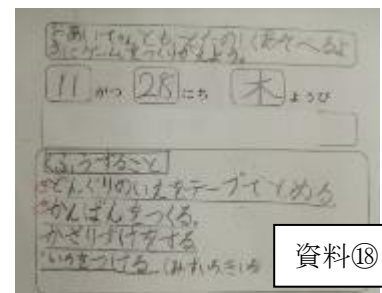 11 がつ 28 にち 木 ようび
くふうすること
どんぐりのいえをテープでとめる
かんばんをつくる。
かざりつけをする
いろをつける。(みずいろきいろ
資料⑱